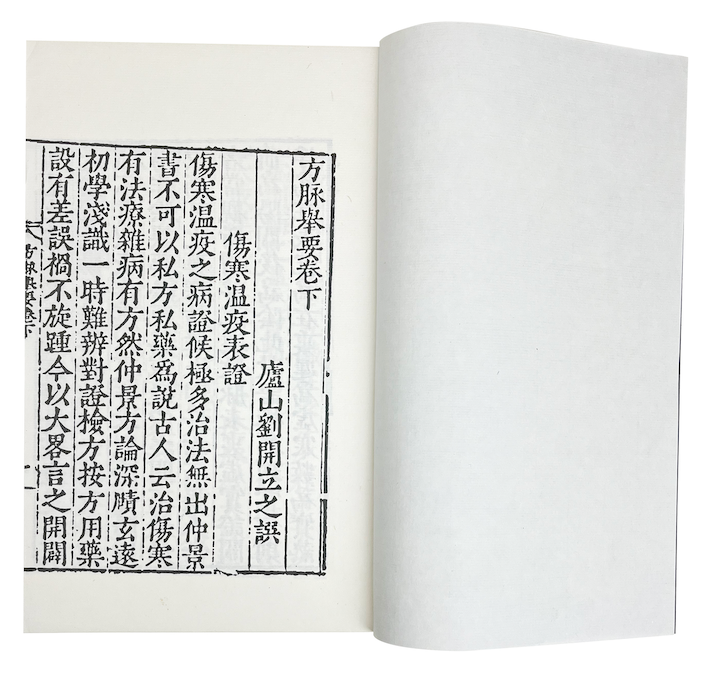 方脉舉要卷下
廬山劉開立之譔
傷寒温疫表證
傷寒温疫之病證候極多治法無出仲景
書不可以私方私藥爲說古人云治傷寒
有法療雜病有方然仲景方論深賾玄遠
初學淺識一時難辨對證檢方按方用藥
設有差誤禍不旋踵今以大畧言之開闢
方脉舉要卷下
一